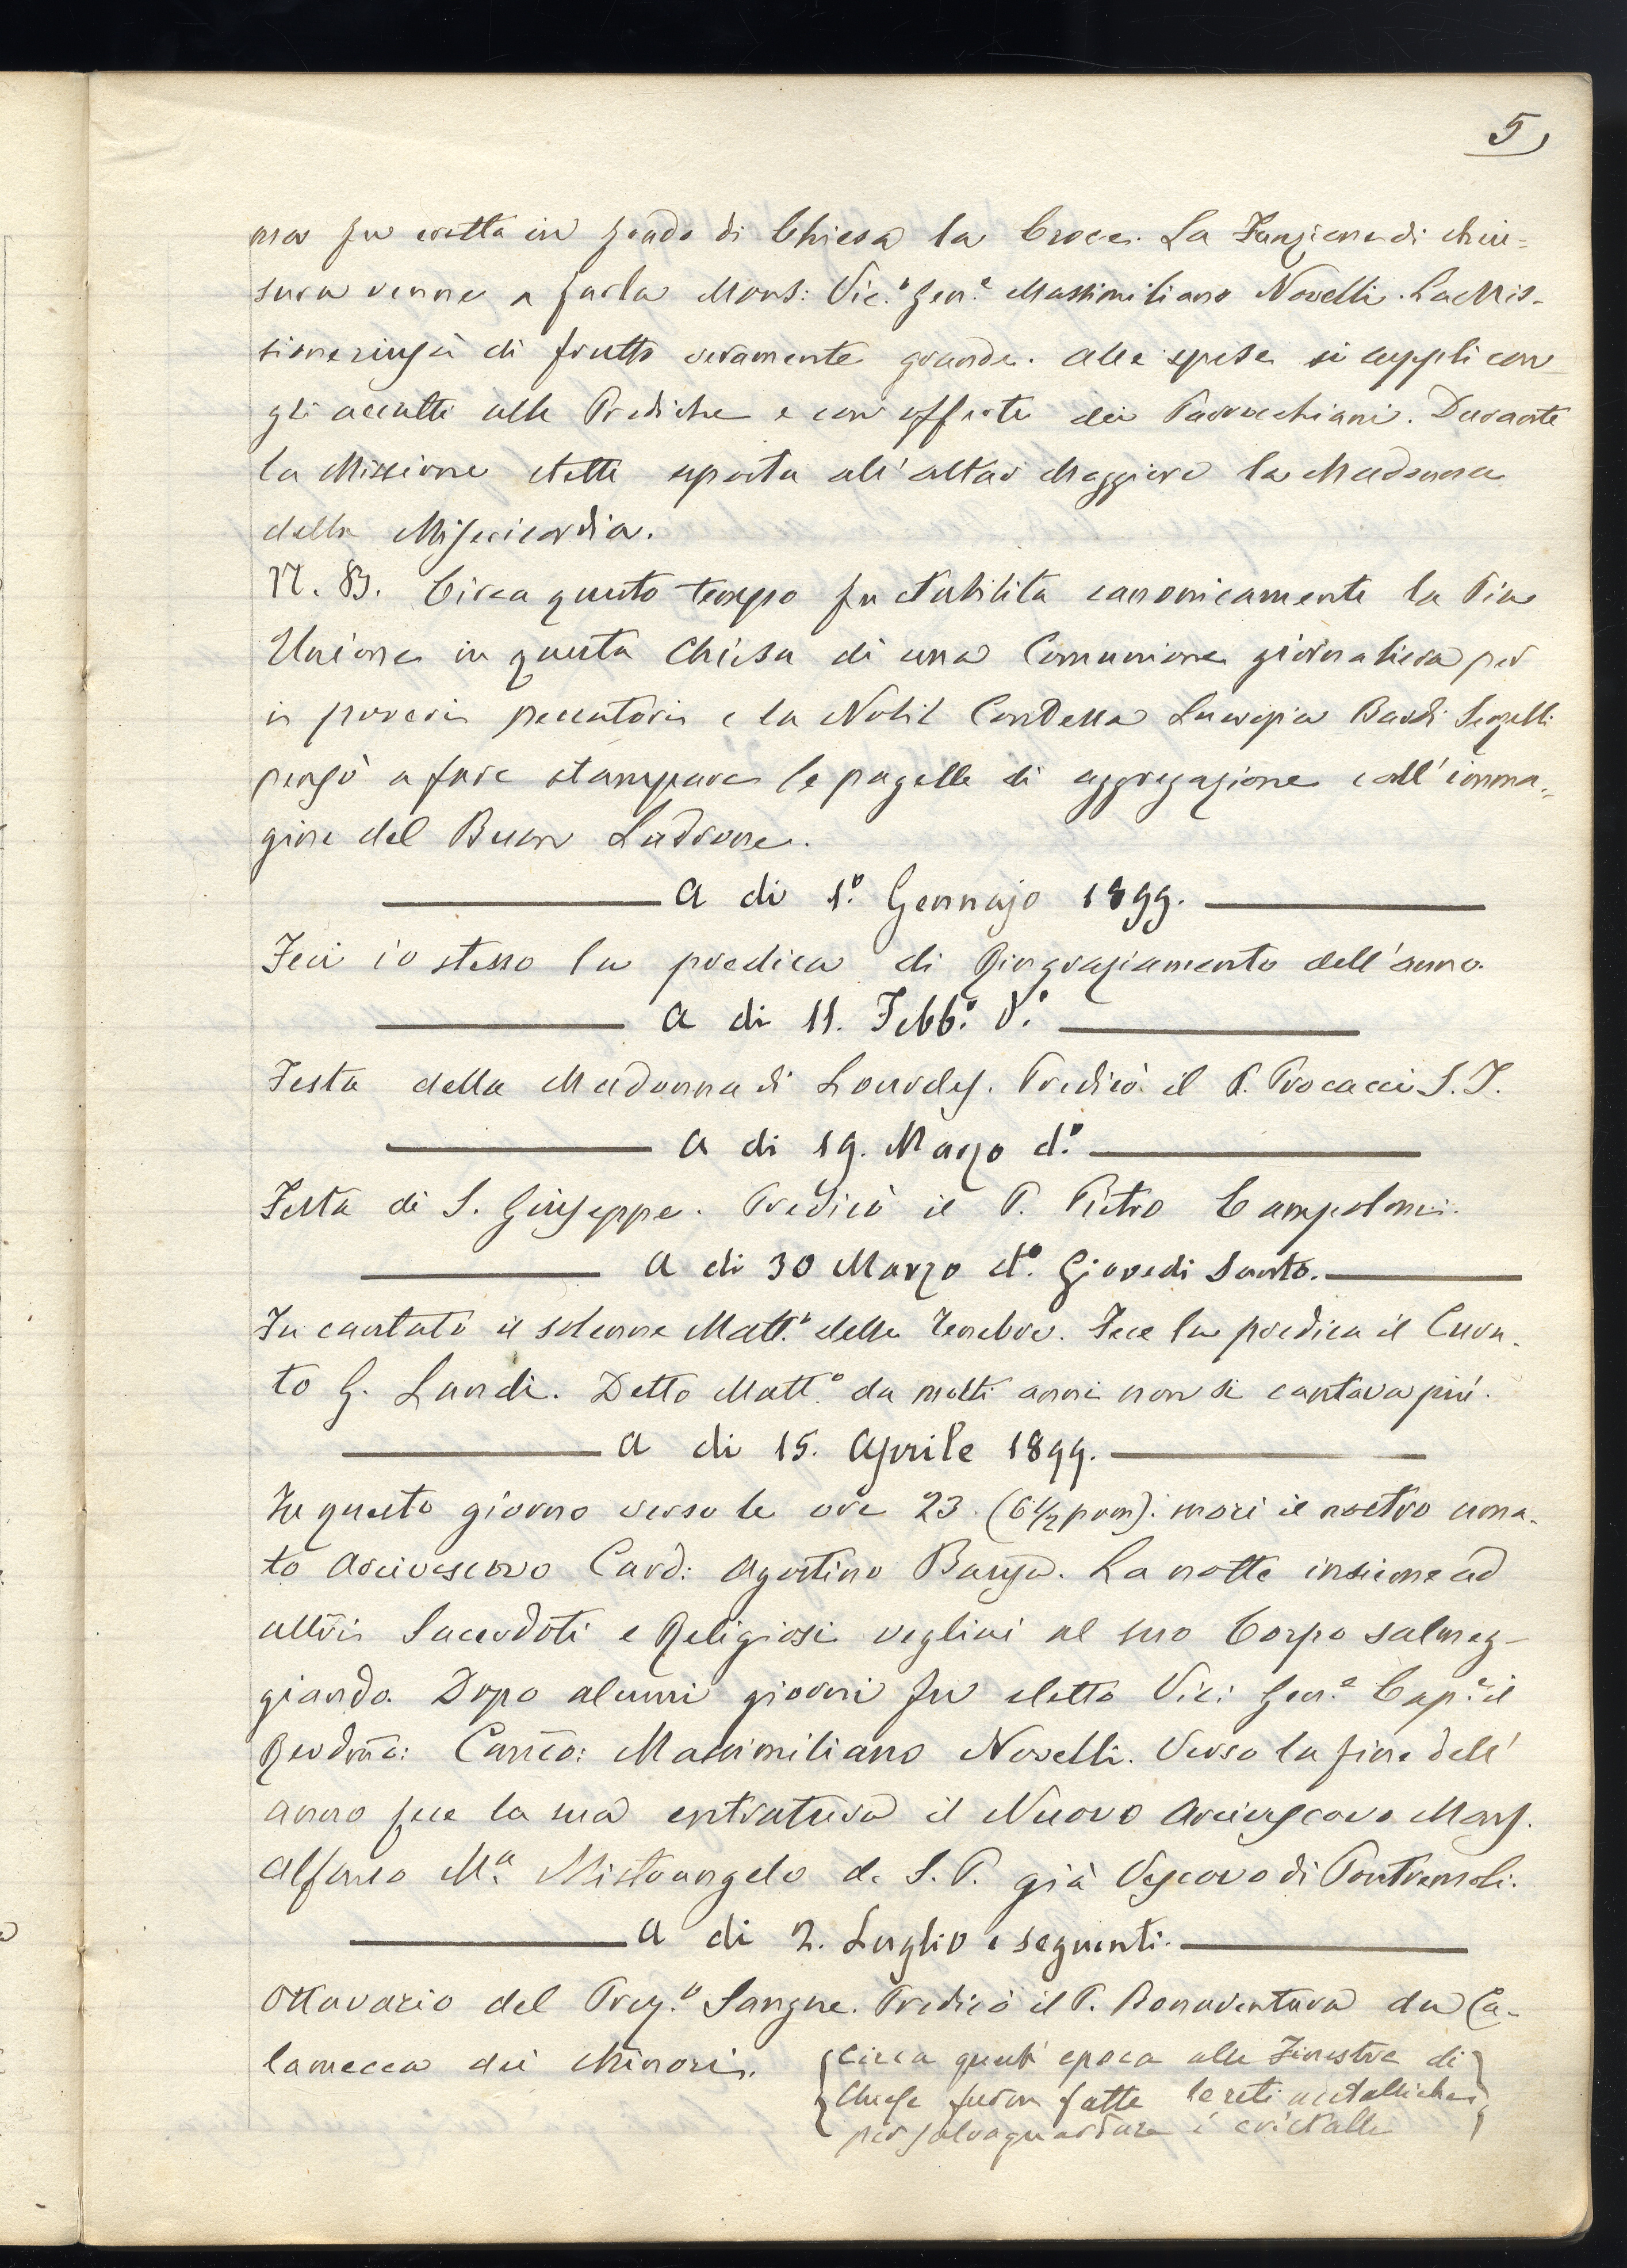 5
na fu eretta in fondo di Chiesa la Croce. La Funzione di chiu=
sura venne a farla Mons: Vic.º Gen.e Massimiliano Novelli. La Mis-
sione riuscì di frutto veramente grande. Alle spese si supplì con
gli accatti alle Prediche e con offerte dei Parrocchiani. Durante
la Missione stette esposta all'altar Maggiore la Madonna
della Misericordia.
N. B. Circa questo tempo fu stabilita canonicamente la Pia
Unione in questa Chiesa di una Comunione giornaliera per
i poveri peccatori e la Nobil Contessa Bardi
pensò a fare stampare le pagelle di aggregazione coll'imma=
gine del Buon Ladrone.
A di 1º Gennajo 1899.
Feci io stesso la predica di Ringraziamento dell'anno.
A di 11. Febb.º d.º
Festa della Madonna di Lourdes. Predicò il P. Procacci S.J.
A di 19. Marzo d.º
Festa di S. Giuseppe. Predicò il P. Pietro Campolmi.
A di 30 Marzo d.º Giovedi Santo.
Fu cantato il solenne Matt.º delle Tenebre. Fece la predica il Cura-
to G. Landi. Detto Matt.º da molti anni non si cantava più.
A di 15. Aprile 1899.
In questo giorno verso le ore 23 (6 1/2 pom): morì il nostro ama-
to Arcivescovo Card: Agostino Bausa. La notte insieme ad
altri Sacerdoti e Religiosi vegliai al suo Corpo salmeg-
giando. Dopo alcuni giorni fu eletto Vic: Gen.e Cap.e il
Revdmo: Canco: Massimiliano Novelli. Verso la fine dell'
anno fece la sua entratura il Nuovo Arcivescovo Mons.
Alfonso M.a Mistrangelo d. S. P. già Vescovo di Pontremoli.
A di 2. Luglio e seguenti.
Ottavario del Prez.º Sangue. Predicò il P. Bonaventura da Ca-
lamecca dei Minori.
Circa quest'epoca alle Finestre di
Chiesa furon fatte le reti metalliche
per salvaguardare i cristalli